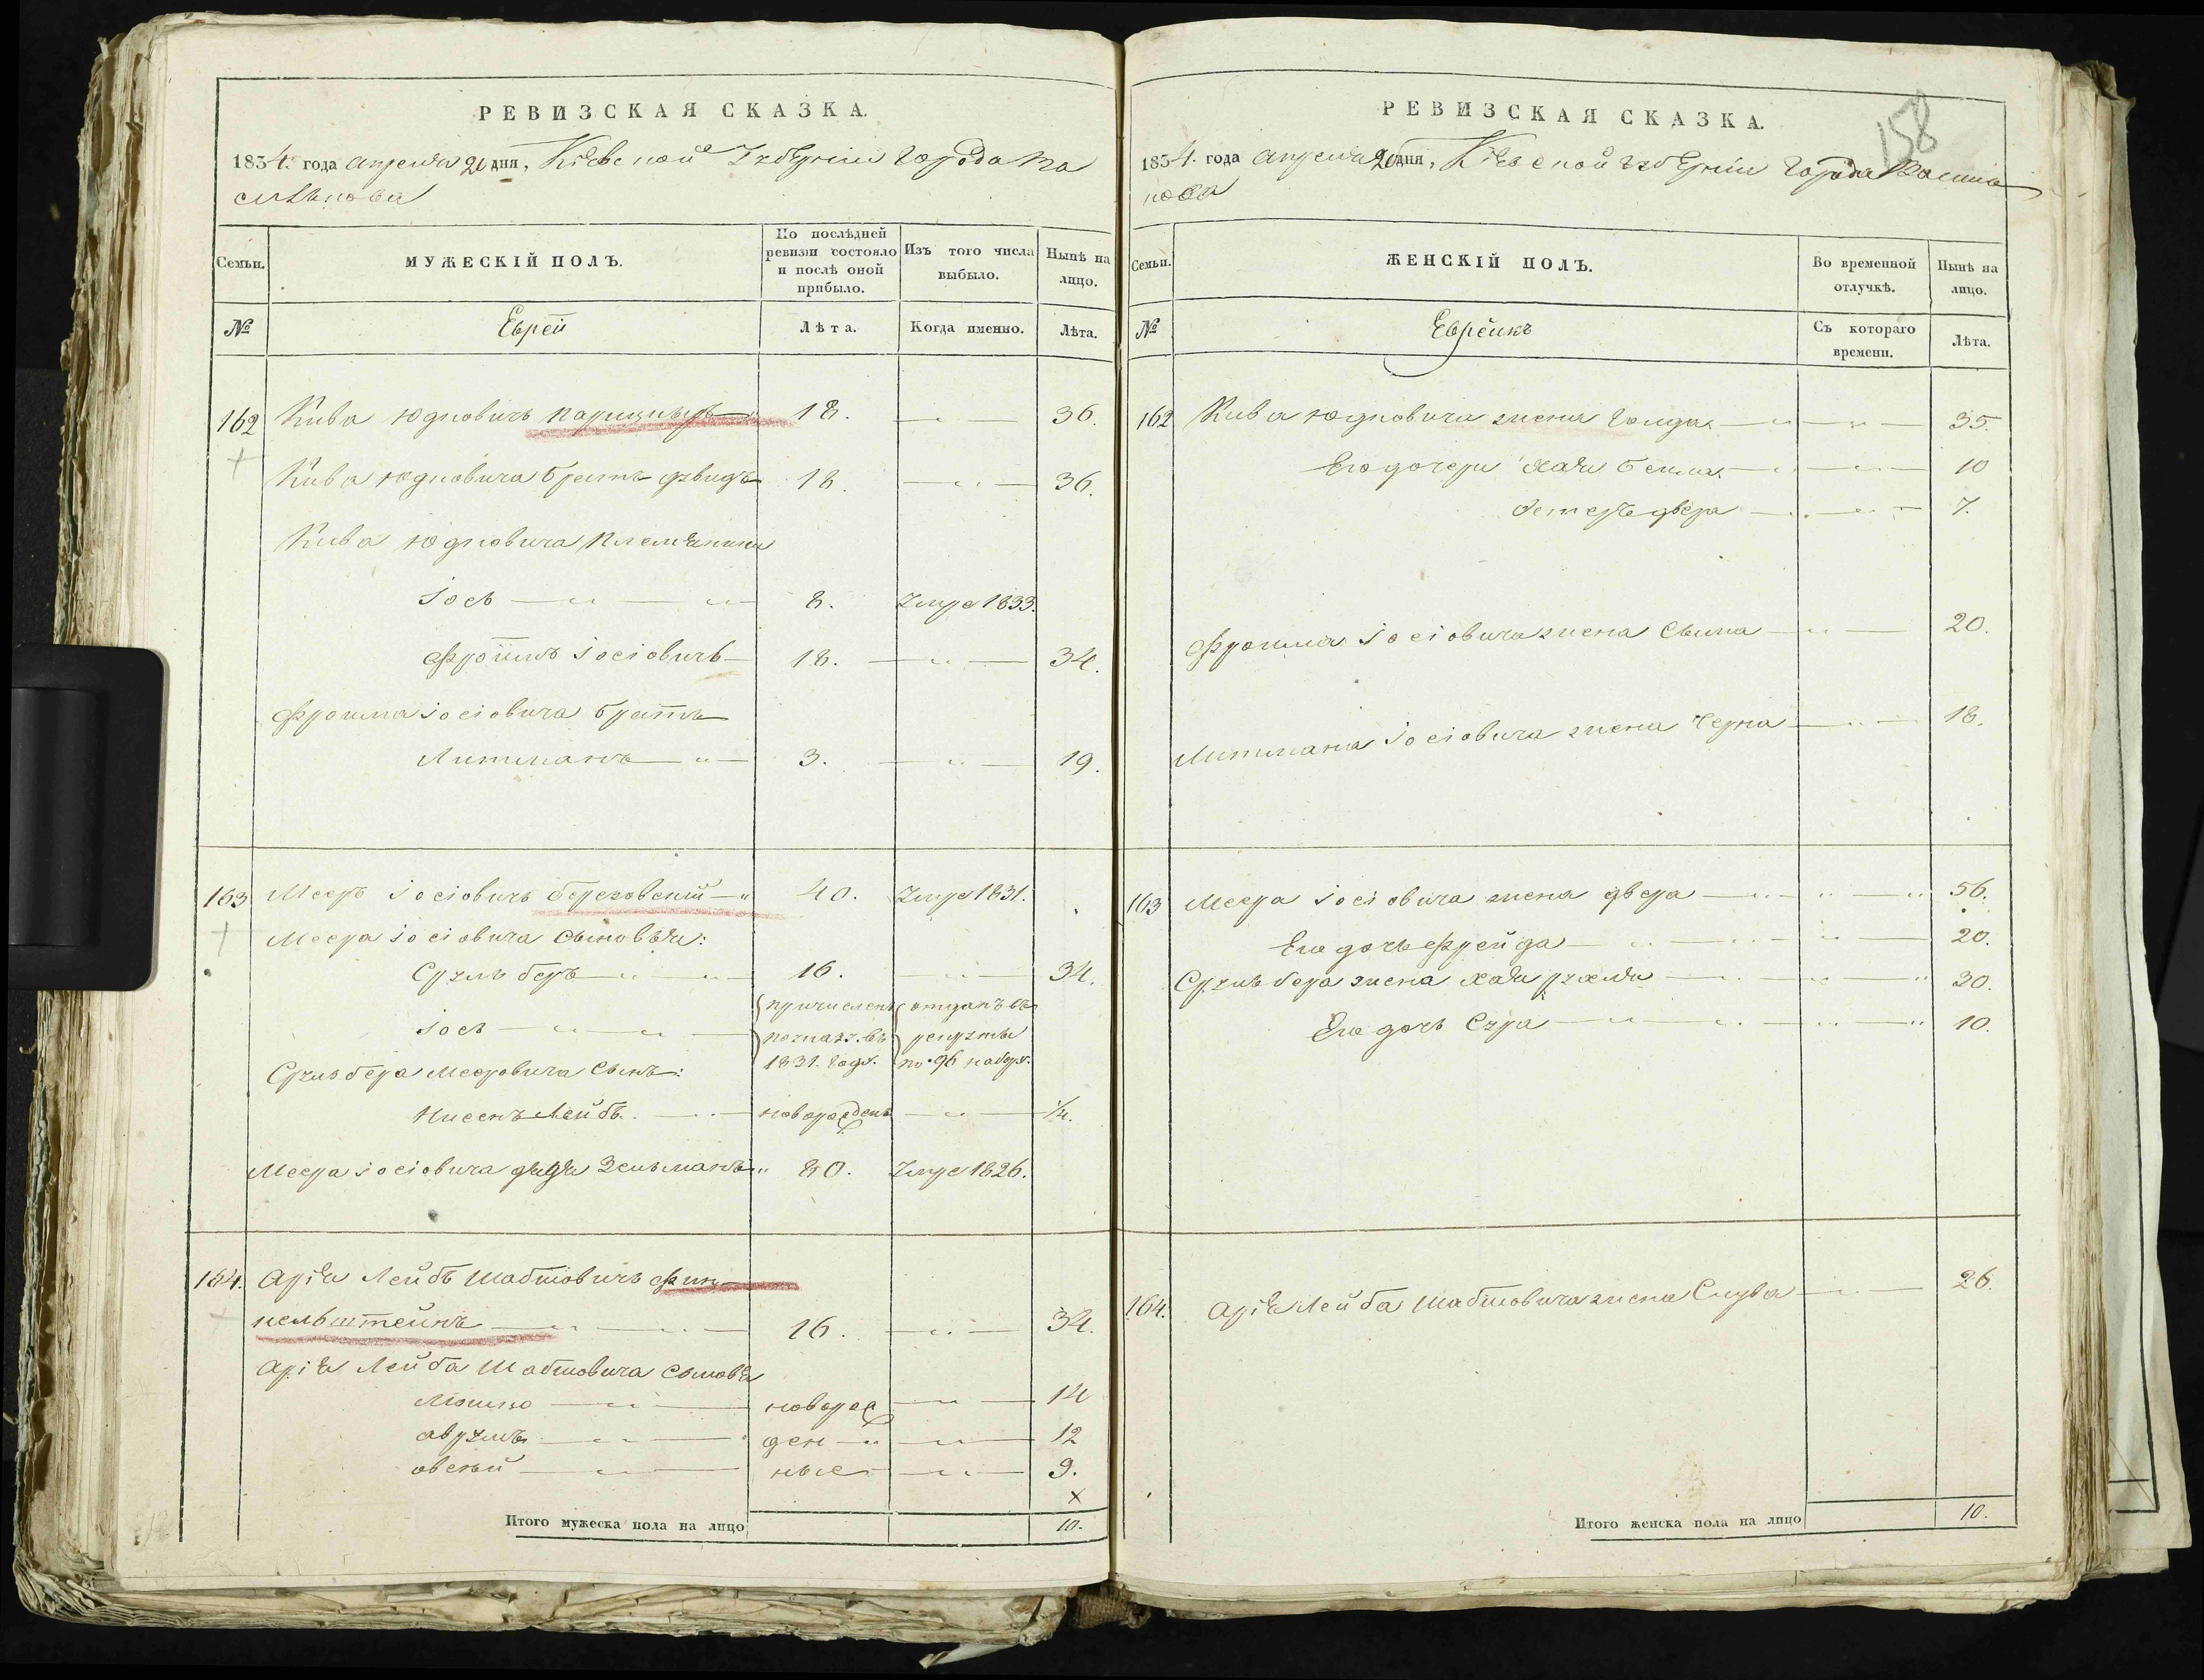 РЕВИЗСКАЯ СКАЗКА.
1834 года апреля 20 дня, Кіевской Губерніи города Ва
силькова
Семьи.
МУЖЕСКІЙ ПОЛЪ.
По послѣдней ревизіи состояло и послѣ оной прибыло.
Изъ того числа выбыло.
Нынѣ на лицо.
№
Еврей
Лѣта.
Когда именно.
Лѣта.
162 Кива Юдковичъ 18. 36.
Кива Юдковича братъ 18. 36.
Кива Юдковича племянники
Іось 8. Умре 1833.
Фроимъ Іосіовичъ 18. 34.
Фроима Іосіовича братъ
Литманъ 3. 19.
163 Мееръ Іосіовичъ Береговский 40. Умре 1831.
Меера Іосіовича сыновья:
Сруль беръ 16. 34.
Іось причисленъ по указ. въ 1831. году. отданъ въ рекруты по 96 набору.
Срульбера Мееровича сынъ:
Нисенъ Лейбъ. новорожденъ 1/4.
Меера Іосіовича дядя Зельманъ 80. Умре 1826.
164. Арія Лейбъ Шабшовичъ Фин
кельштейнъ 16. 34.
Арія Лейба Шабшовича сыновья
Мошко новорож 14
Аврумъ ден 12
Овсѣй ные 9.
х
Итого мужеска пола на лицо 10.
158
РЕВИЗСКАЯ СКАЗКА.
1834. года апреля 20 дня, Кіевской губерніи города Василь
кова
Семьи.
ЖЕНСКІЙ ПОЛЪ.
Во временной отлучкѣ.
Нынѣ на лицо.
№
Еврейкъ
Съ котораго времени.
Лѣта.
162 Кива Юдковича жена Голда 35.
Его дочери Хая Бейла 10
Эстеръ двера 7.
Фроима Іосіовича жена Сима 20.
Литмана Іосіовича жена Черна 18.
163 Меера Іосіовича жена двера 56.
Его дочь Фрейда 20.
Срульбера жена Хая рухля 30.
Его дочь Сура 10.
164. Аріе Лейба Шабшовича жена 26.
Итого женска пола на лицо 10.